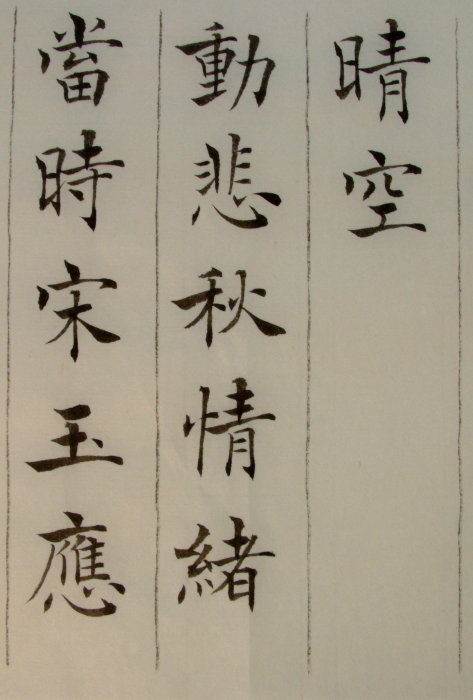 晴空
動悲秋情緒
當時宋玉應